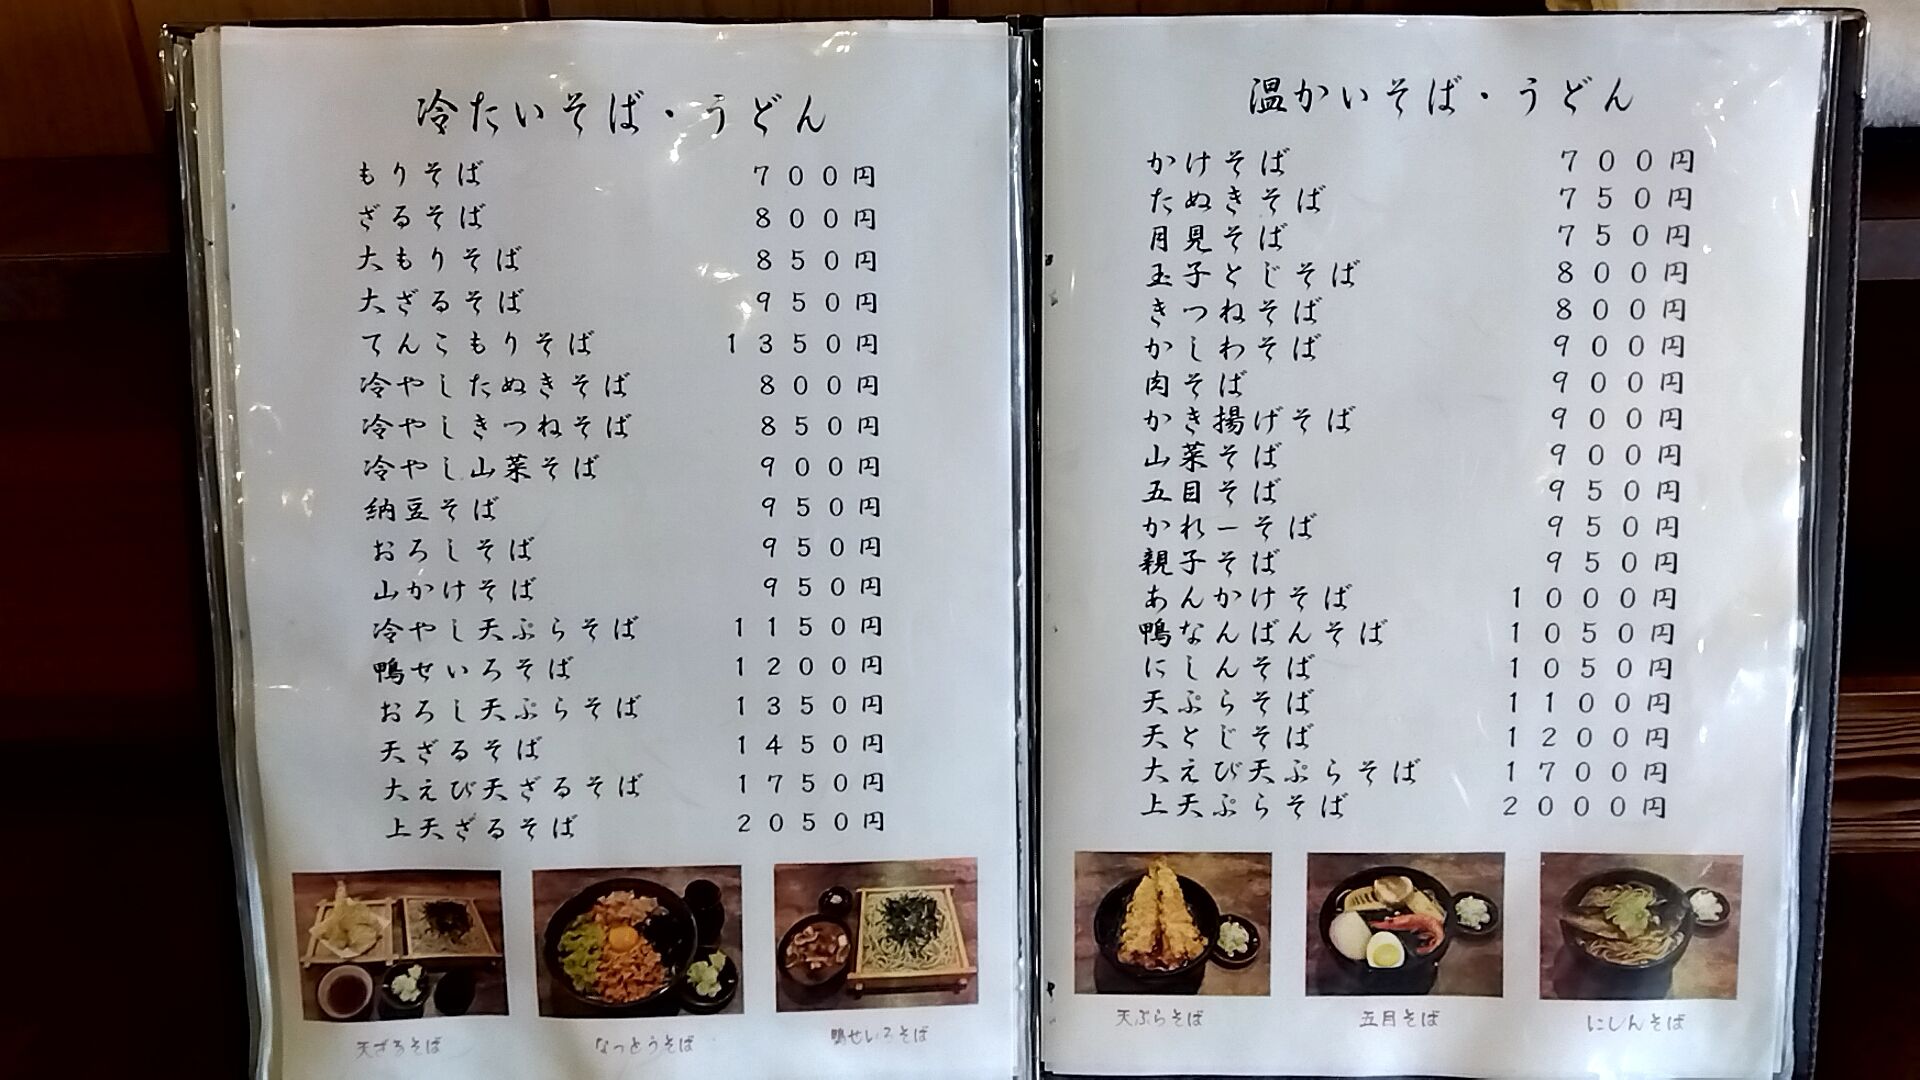 冷たいそば・うどん
もりそば 700円
ざるそば 800円
大もりそば 850円
大ざるそば 950円
てんこもりそば 1350円
冷やしたぬきそば 800円
冷やしきつねそば 850円
冷やし山菜そば 900円
納豆そば 950円
おろしそば 950円
山かけそば 950円
冷やし天ぷらそば 1150円
鴨せいろそば 1200円
おろし天ぷらそば 1350円
天ざるそば 1450円
大えび天ざるそば 1750円
上天ざるそば 2050円
天ざるそば
なっとうそば
鴨せいろそば
温かいそば・うどん
かけそば 700円
たぬきそば 750円
月見そば 750円
玉子とじそば 800円
きつねそば 800円
かしわそば 900円
肉そば 900円
かき揚げそば 900円
山菜そば 900円
五目そば 950円
かれーそば 950円
親子そば 950円
あんかけそば 1000円
鴨なんばんそば 1050円
にしんそば 1050円
天ぷらそば 1100円
天とじそば 1200円
大えび天ぷらそば 1700円
上天ぷらそば 2000円
天ぷらそば
五目そば
にしんそば